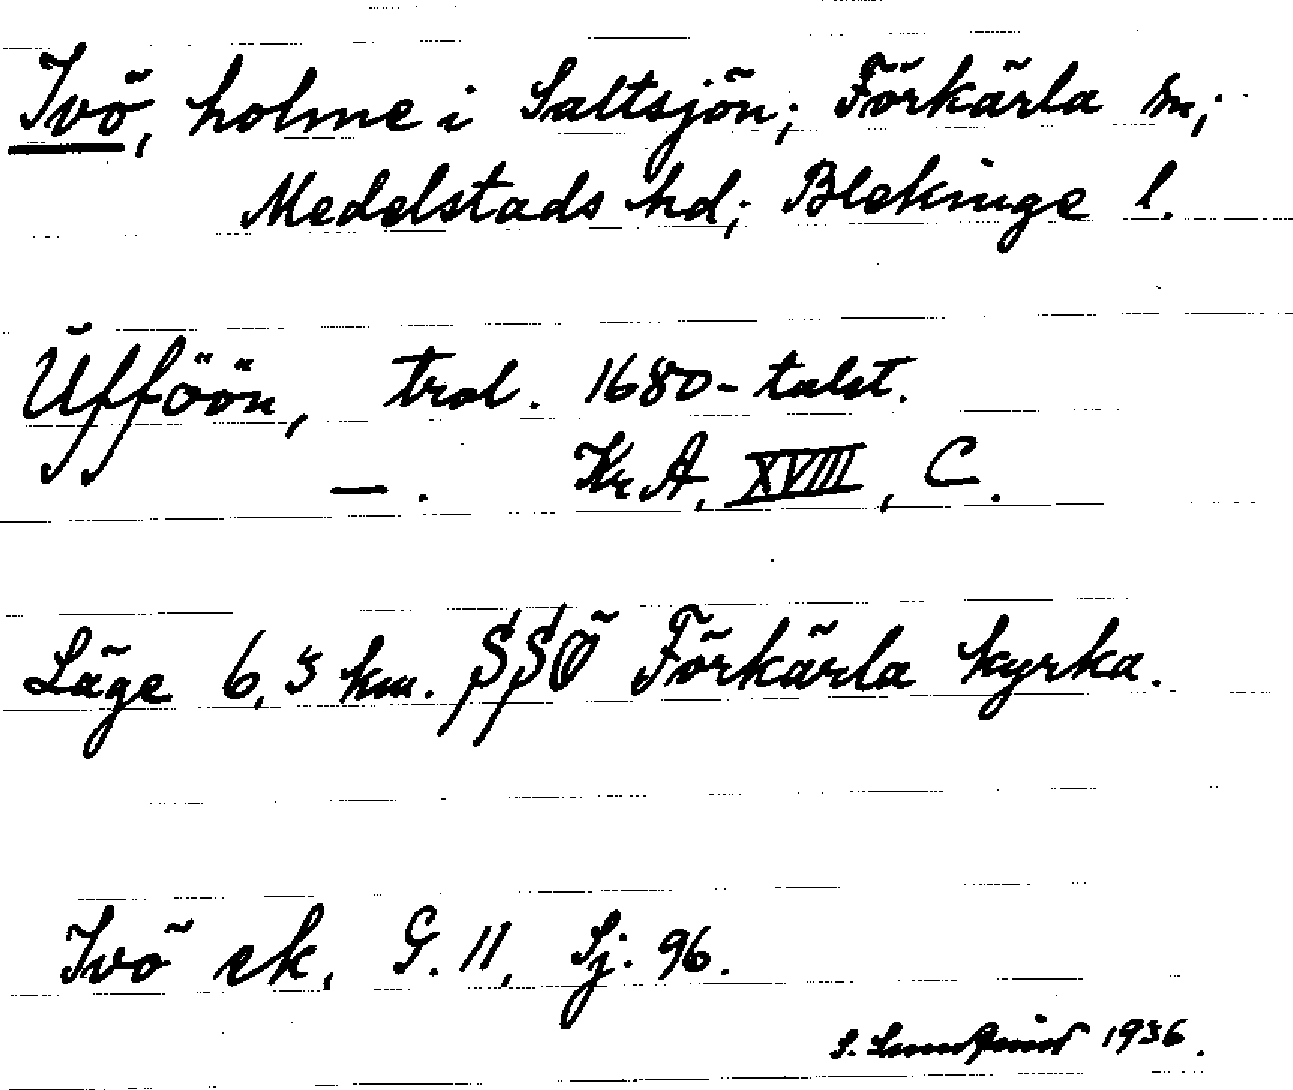 Ivö, holme i Saltsjön; Förkärla sn;
Medelstads hd; Blekinge l.
Üfföön, trol. 1680-talet.
— . KrA, XVIII, C.
Läge 6,5 km. SSÖ Förkärla kyrka.
Ivö ek, G. 11, Sj. 96.
S. 1936.